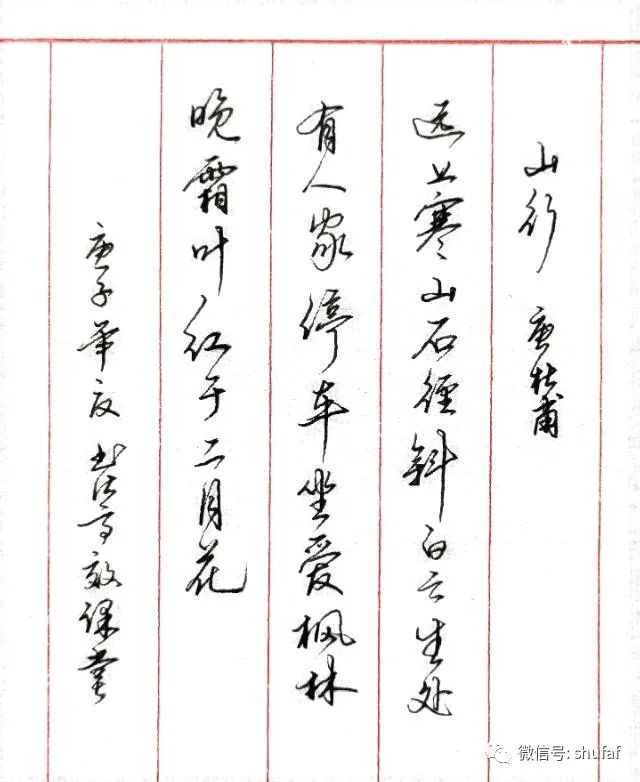 山行 唐 杜甫
远上寒山石径斜白云生处
有人家停车坐爱枫林
晚霜叶红于二月花
庚子华文书法高效课堂
微信号: shufaf